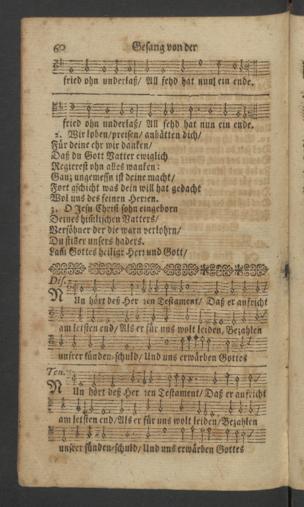 60 Gesang von der
fried ohn underlaß/ All fehd hat nun ein ende.
fried ohn underlaß/ All fehd hat nun ein ende.
2. Wir loben/preisen/ anbätten dich/
Für deine ehr wir danken/
Daß du Gott Vatter ewiglich
Regierest ohn alles wanken:
Gantz ungemessn ist deine macht/
Fort gschicht was dein will hat gedacht
Wol uns des feinen Herren.
3. O Jesu Christ sohn eingeborn
Deines himlischen Vatters/
Versöhner der die warn verlohrn/
Du stiller unsers haders.
Lam Gottes heiliger Herr und Gott/
Dis.
NUn hört deß Herren Testament/ Daß er aufricht
am letsten end/ Als er für uns wolt leiden, Bezahlen
unsrer sünden-schuld/ Und uns erwärben Gottes
Ten.
NUn hört deß Herren Testament/ Daß er aufricht
am letsten end/ Als er für uns wolt leiden/ Bezahlen
unsrer sünden-schuld/ Und uns erwärben Gottes